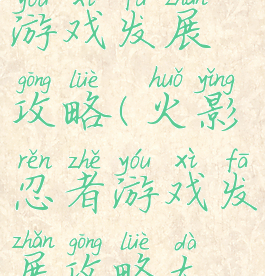 yóu xì fā zhǎn
游戏发展
gōng lüè huǒ yǐng
攻略(火影
rěn zhě yóu xì fā
忍者游戏发
zhǎn gōng lüè dà
展攻略大